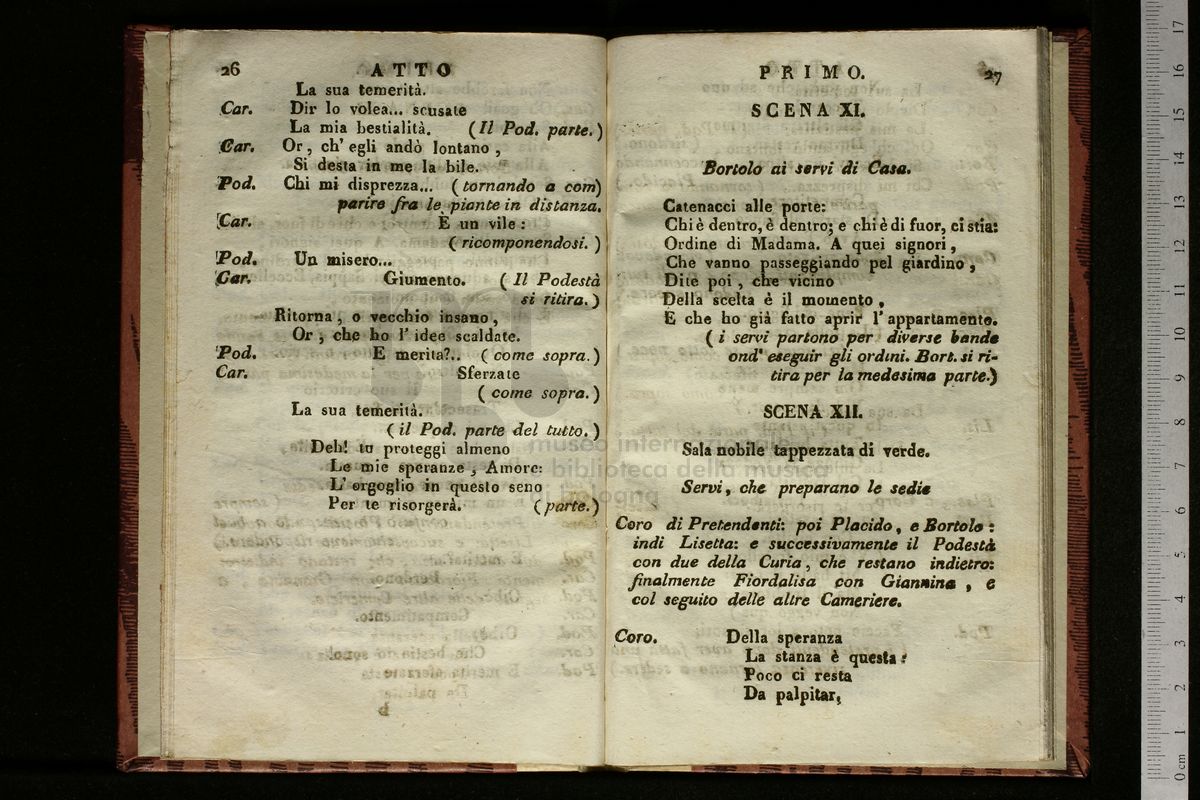 26 ATTO
La sua temerità.
Car. Dir lo volea... scusate
La mia bestialità. (Il Pod. parte.)
Car. Or, ch' egli andò lontano,
Si desta in me la bile.
Pod. Chi mi disprezza... (tornando a com)
parire fra le piante in distanza.
Car. È un vile:
(ricomponendosi.)
Pod. Un misero...
Car. Giumento. (Il Podestà
si ritira.)
Ritorna, o vecchio insano,
Or, che ho l' idee scaldate.
Pod. E merita?.. (come sopra.)
Car. Sferzate
(come sopra.)
La sua temerità.
(il Pod. parte del tutto.)
Deh! tu proteggi almeno
Le mie speranze, Amore:
L' orgoglio in questo seno
Per te risorgerà. (parte.)
PRIMO. 27
SCENA XI.
Bortolo ai servi di Casa.
Catenacci alle porte:
Chi è dentro, è dentro; e chi è di fuor, ci stia:
Ordine di Madama. A quei signori,
Che vanno passeggiando pel giardino,
Dite poi, che vicino
Della scelta è il momento,
E che ho già fatto aprir l' appartamento.
(i servi partono per diverse bande
ond' eseguir gli ordini. Bort. si ri-
tira per la medesima parte.)
SCENA XII.
Sala nobile tappezzata di verde.
Servi, che preparano le sedie
Coro di Pretendenti: poi Placido, e Bortolo:
indi Lisetta: e successivamente il Podestà
con due della Curia, che restano indietro:
finalmente Fiordalisa con Giannina, e
col seguito delle altre Cameriere.
Coro. Della speranza
La stanza è questa:
Poco ci resta
Da palpitar,
museo internazionale e
biblioteca della musica
di bologna
0 cm 1 2 3 4 5 6 7 8 9 10 11 12 13 14 15 16 17